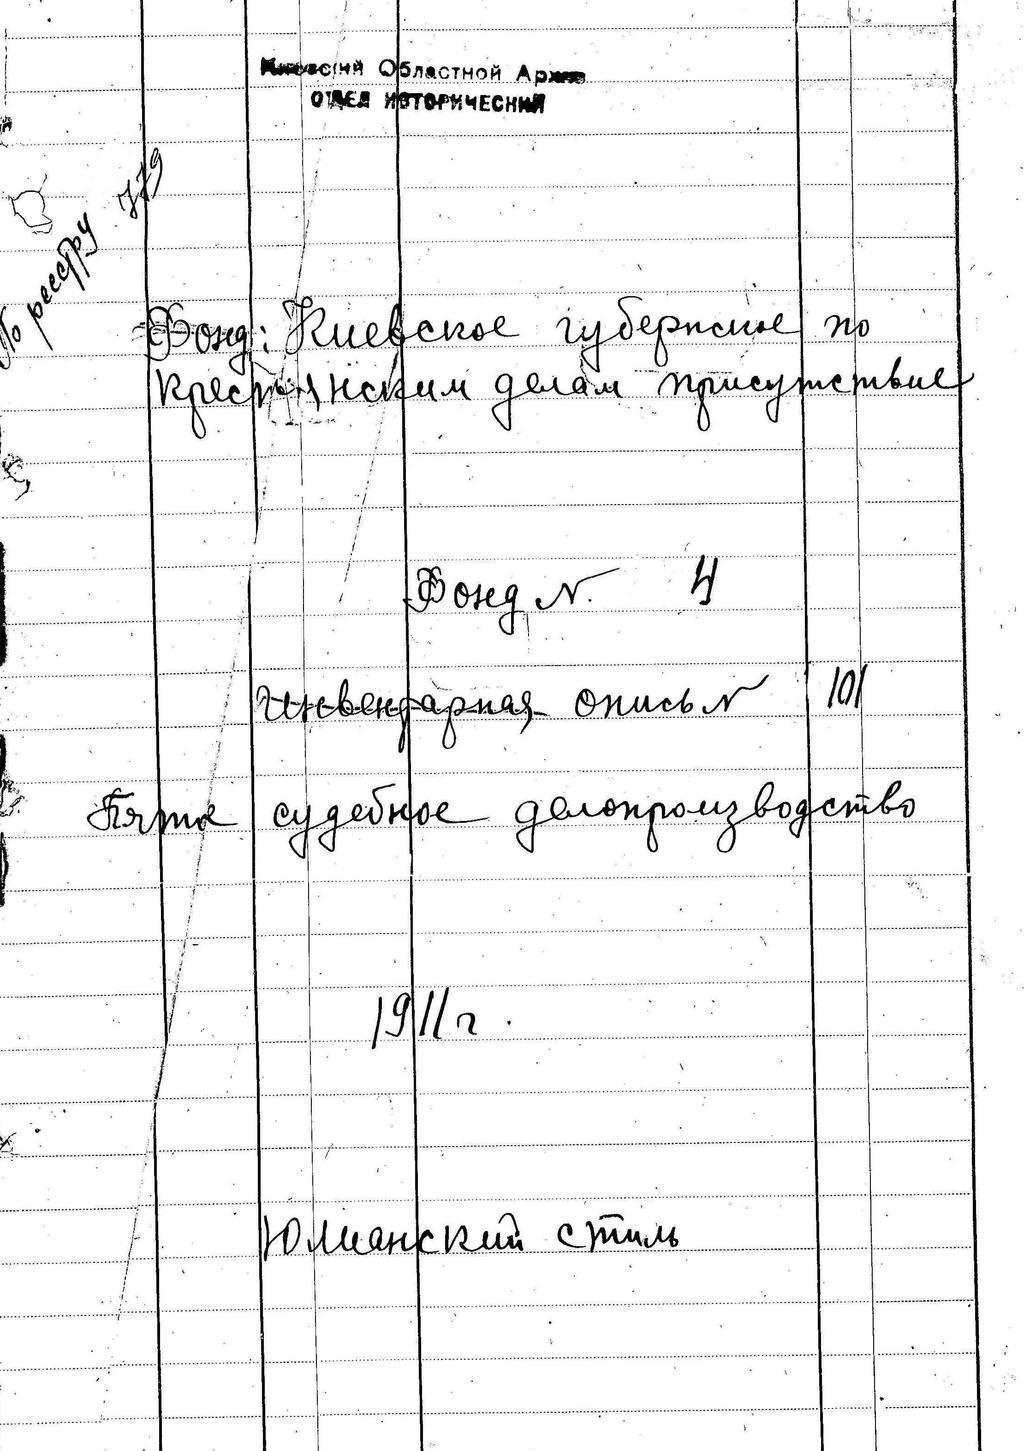 Киевский Областной Архив
ОТДЕЛ ИСТОРИЧЕСКИЙ
По реестру 779
Фонд: Киевское губернское по
крестьянским делам присутствие
Фонд N. 4
Инвентарная опись N 101
Пятое судебное делопроизводство
1911 г.
Юлианский стиль